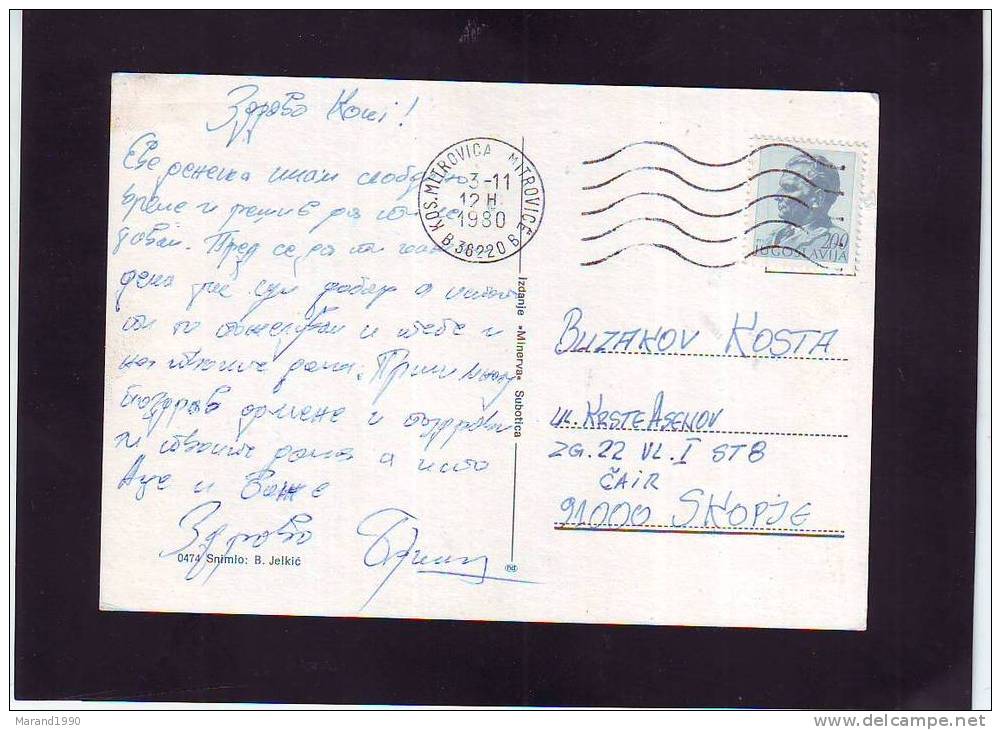 Здраво Кочі!
Еве денеска имам слободно
време и решив да ти се
јавам. Пред се да ти
дека јас сум добар а истото
ти го пожелувам и тебе и
на твоите дома. Прими многу
поздрав од мене и поздрави
ги твоите дома а исто
Аце и
Здраво
0474 Snimio: B. Jelkić
Izdanje »Minerva« Subotica
KOS. MITROVICA MITROVICË
3-11
12 H.
1980
B 38220 B
2.00
JUGOSLAVIJA
BUZAKOV KOSTA
UL. KRSTE ASENOV
ZG. 22 VL. I ST 8
ČAIR
91000 SKOPJE
Marand1990
delcampe.net